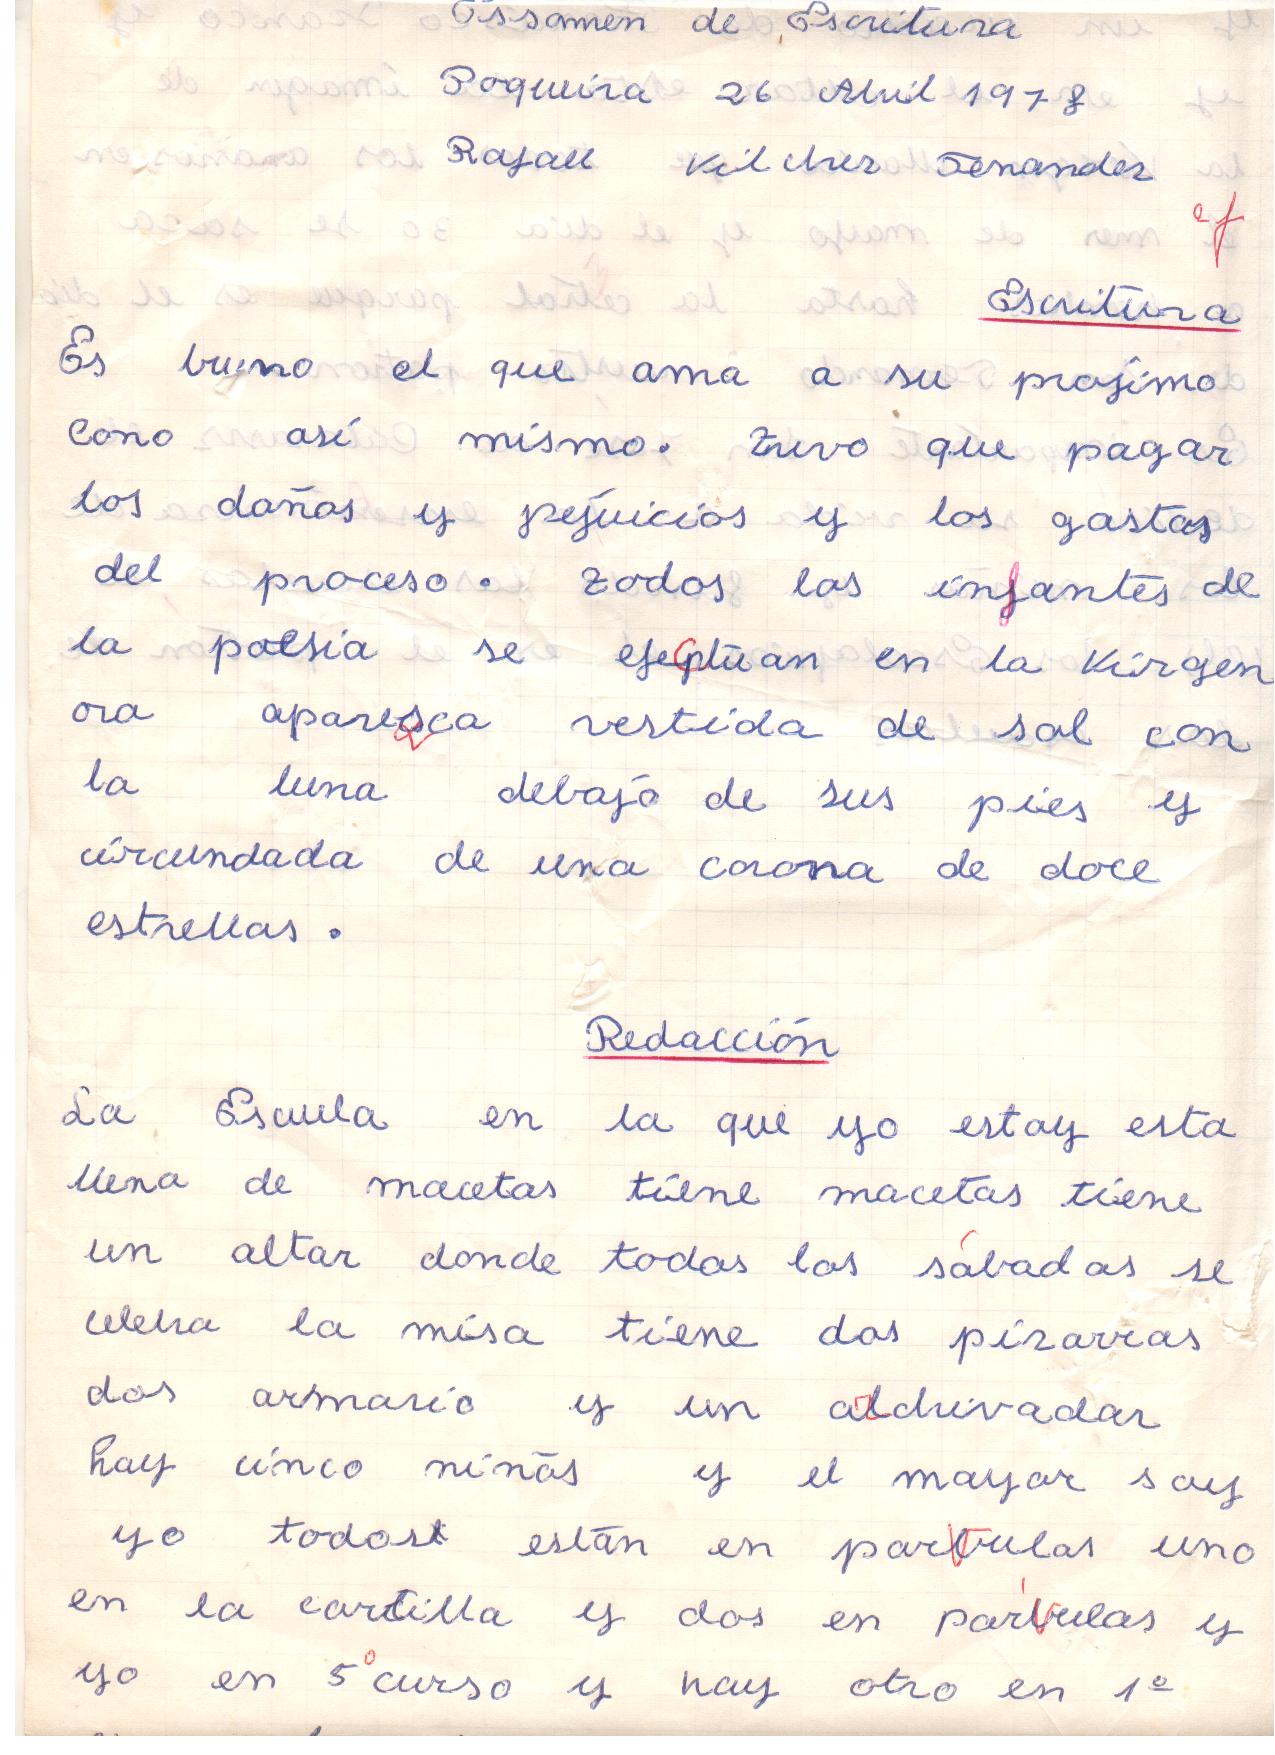 Essamen de Escritura
Poqueira 26 Abril 1978
Rafall Vilchez Fenandez
Escritura
Es bueno el que ama a su projimo
cono así mismo. Tuvo que pagar
los daños y pejuicios y los gastos
del proceso. Todos los infantes de
la poesía se efectúan en la Virgen
ora aparesca vestida de sol con
la luna debajo de sus pies y
circundada de una corona de doce
estrellas.
Redacción
La Escuela en la que yo estoy esta
llena de macetas tiene macetas tiene
un altar donde todos los sábados se
celebra la misa tiene dos pizarras
dos armario y un
hay cinco niños y el mayor soy
yo todos están en parvulos uno
en la cartilla y dos en párvulos y
yo en 5º curso y hay otro en 1º